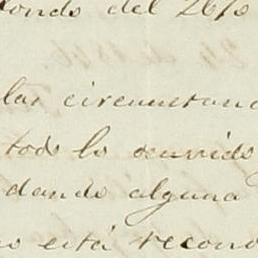 fondo del 26/o
las circunstanc
todo lo ocurrido
dando alguna
no está recono